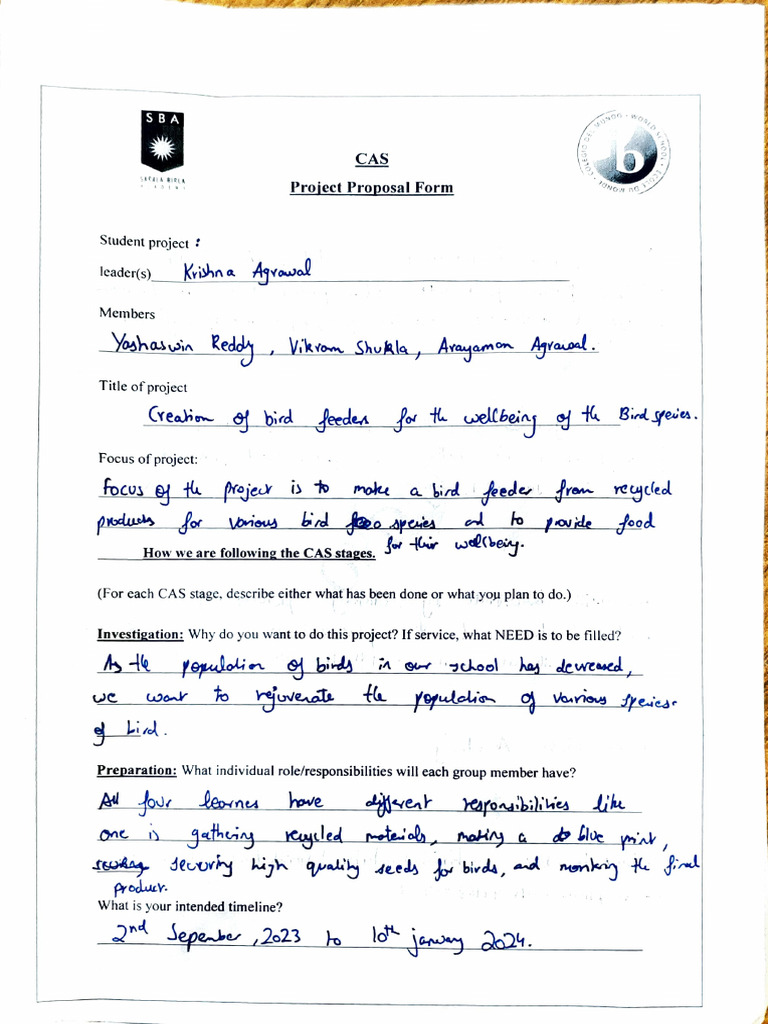 SBA
SARALA BIRLA
ACADEMY
COLEGIO DEL MUNDO · WORLD SCHOOL · ÉCOLE DU MONDE ·
b
CAS
Project Proposal Form
Student project :
leader(s) Krishna Agrawal
Members
Yashaswin Reddy, Vikram Shukla, Arayaman Agrawal.
Title of project
Creation of bird feeders for the wellbeing of the Bird species.
Focus of project:
Focus of the project is to make a bird feeder from recycled
products for various bird species and to provide food
for their wellbeing.
How we are following the CAS stages.
(For each CAS stage, describe either what has been done or what you plan to do.)
Investigation: Why do you want to do this project? If service, what NEED is to be filled?
As the population of birds in our school has decreased,
we want to rejuvenate the population of various species
of bird.
Preparation: What individual role/responsibilities will each group member have?
All four learnes have different responsibilities like
one is gathering recycled materials, making a blue print,
security high quality seeds for birds, and monitring the final
product.
What is your intended timeline?
2nd Sepember, 2023 to 10th january 2024.